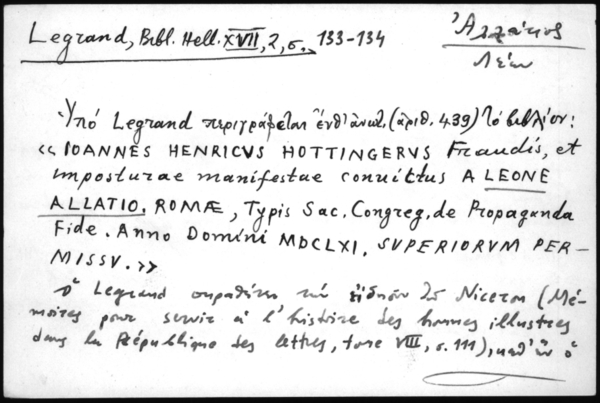 Legrand, Bibl. Hell. XVII, 2, σ. 133-134
Ἀλλάτιος
Λέων
Ὑπό Legrand περιγράφεται ἔνθ' ἀνωτ. (ἀριθ. 439) τό βιβλίον:
«IOANNES HENRICVS HOTTINGERVS Fraudis, et
imposturae manifestae conuictus A LEONE
ALLATIO. ROMÆ, Typis Sac. Congreg. de Propaganda
Fide. Anno Domini MDCLXI. SUPERIORVM PER-
MISSV.»
ὁ Legrand παραθέτει τήν εἴδησιν τοῦ Niceron (Mé-
moires pour servir à l'histoire des hommes illustres
dans la République des lettres, tome VIII, σ. 111), καθ' ἥν ὁ